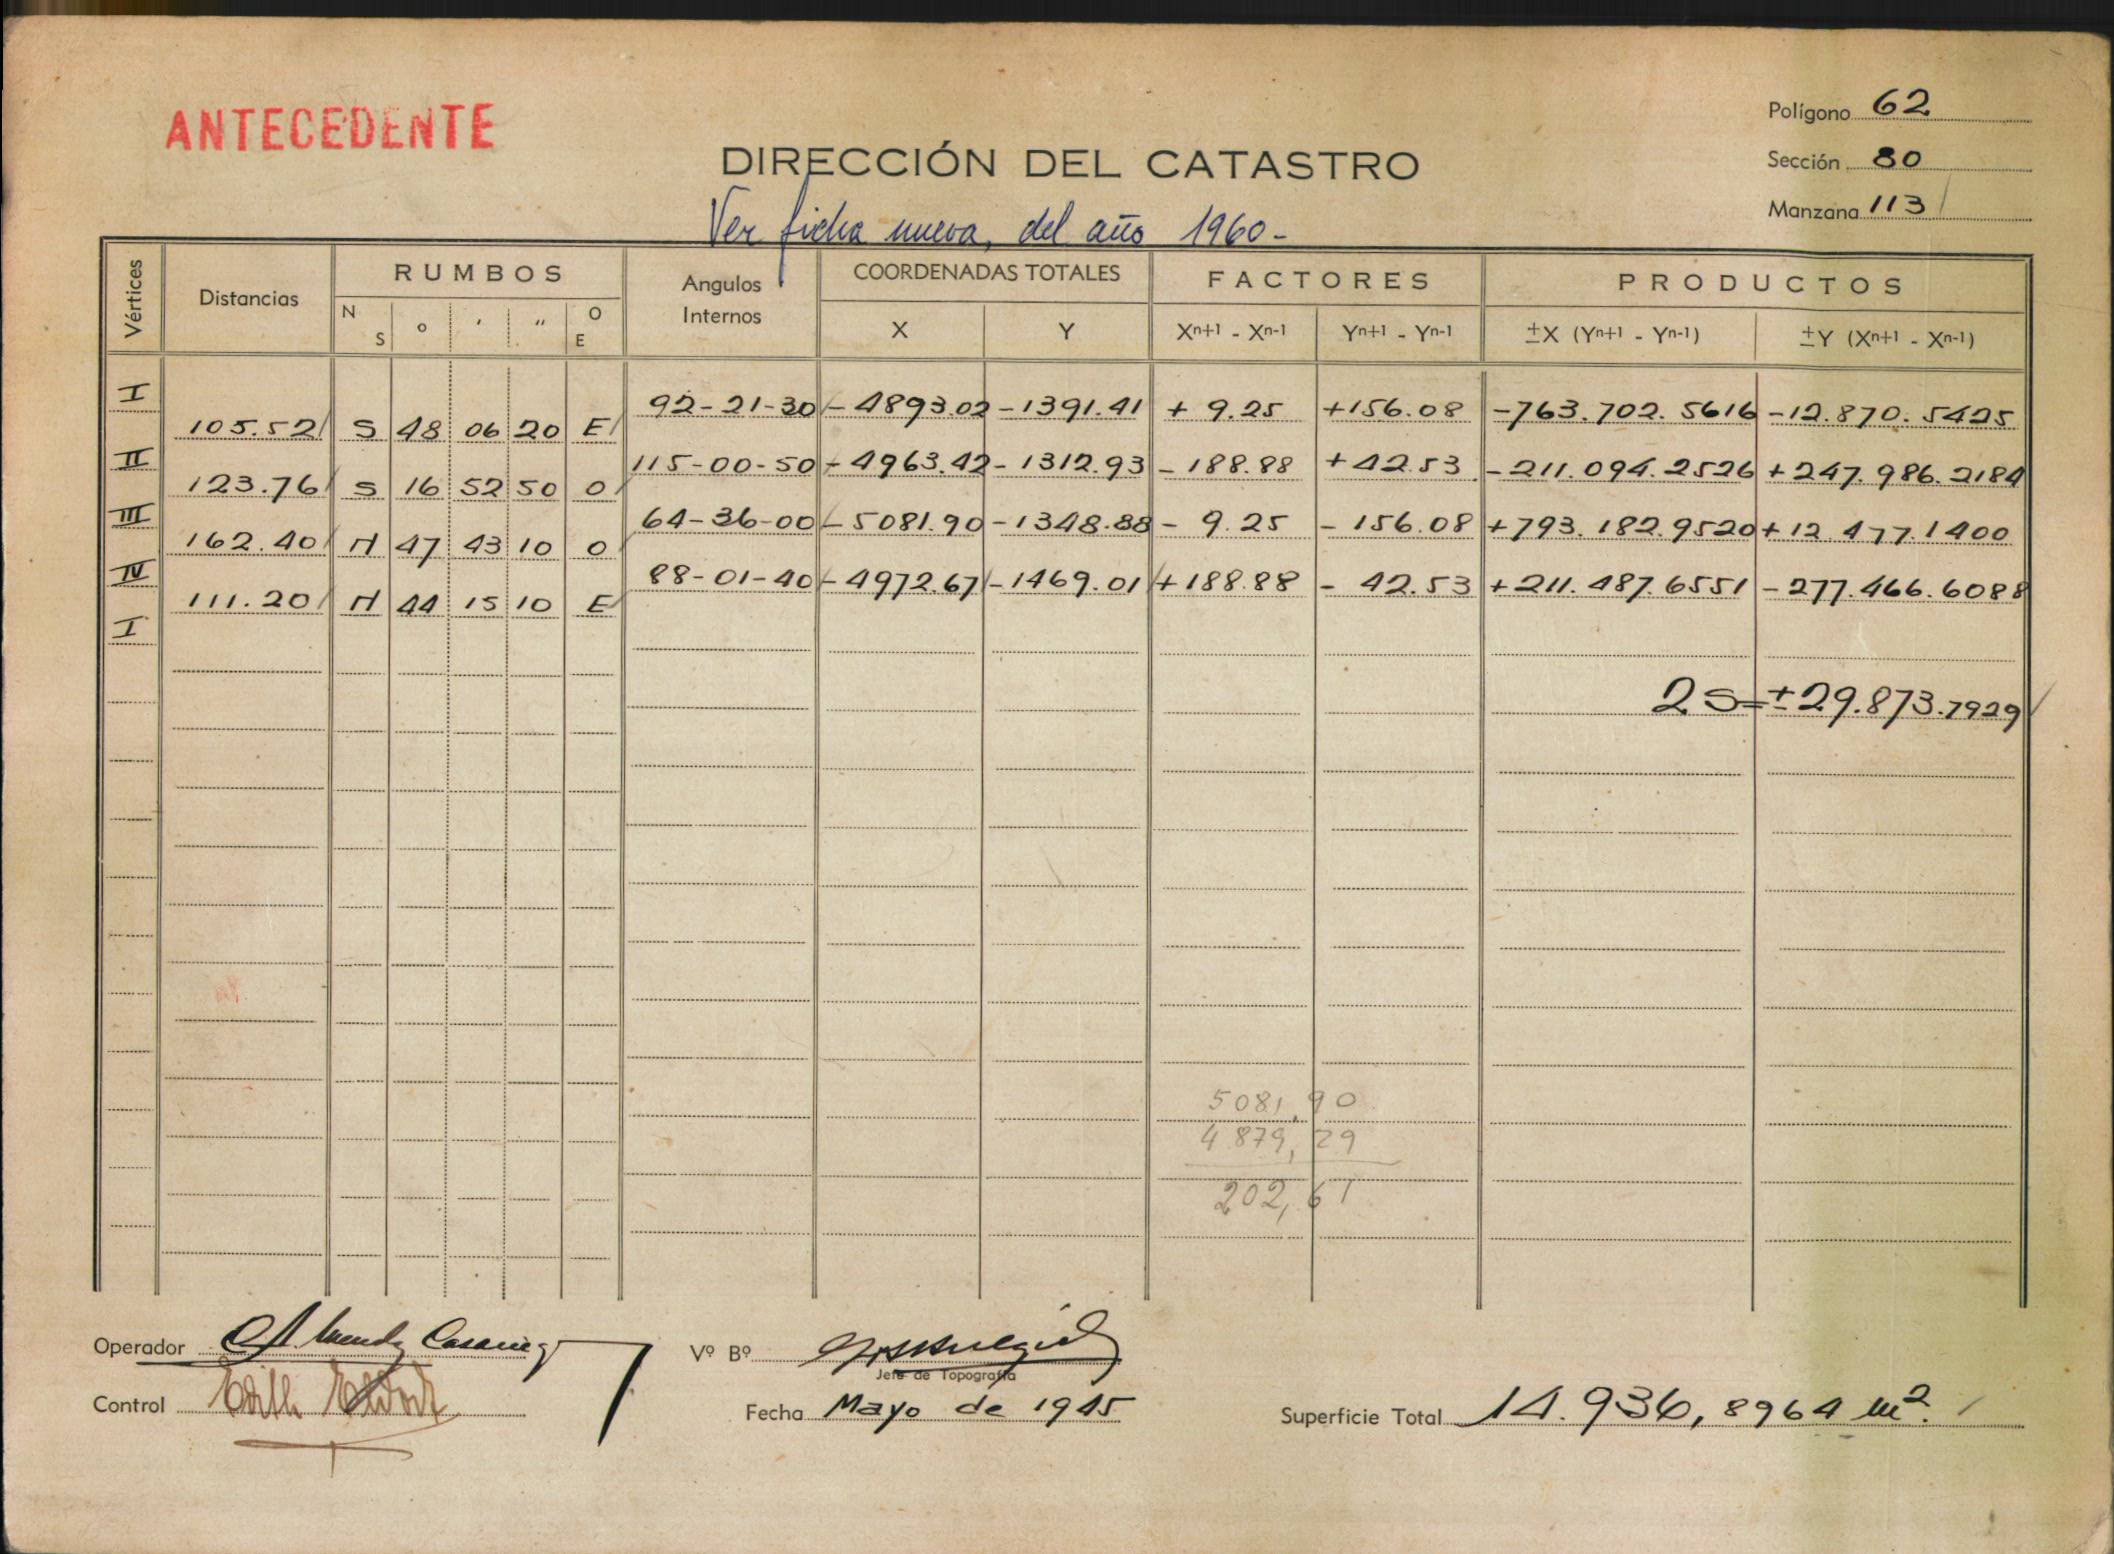 ANTECEDENTE
Polígono 62
Sección 80
Manzana 113
DIRECCIÓN DEL CATASTRO
Ver ficha nueva, del año 1960-
Vértices Distancias RUMBOS Angulos Internos COORDENADAS TOTALES FACTORES PRODUCTOS
N S o ' '' O E X Y Xn+1 - Xn-1 Yn+1 - Yn-1 ±X (Yn+1 - Yn-1) ±Y (Xn+1 - Xn-1)
I 92-21-30 -4893.02 -1391.41 + 9.25 +156.08 -763.702.5616 -12.870.5425
105.52 S 48 06 20 E
II 115-00-50 -4963.42 -1312.93 -188.88 +42.53 -211.094.2526 +247.986.2184
123.76 S 16 52 50 O
III 64-36-00 -5081.90 -1348.88 - 9.25 -156.08 +793.182.9520 +12.477.1400
162.40 N 47 43 10 O
IV 88-01-40 -4972.67 -1469.01 +188.88 - 42.53 +211.487.6551 -277.466.6088
111.20 N 44 15 10 E
I
2S=±29.873.7929
5081,90
4879,29
202,61
Operador
Vº Bº
Jefe de Topografía
Control
Fecha Mayo de 1945
Superficie Total 14.936,8964 m².